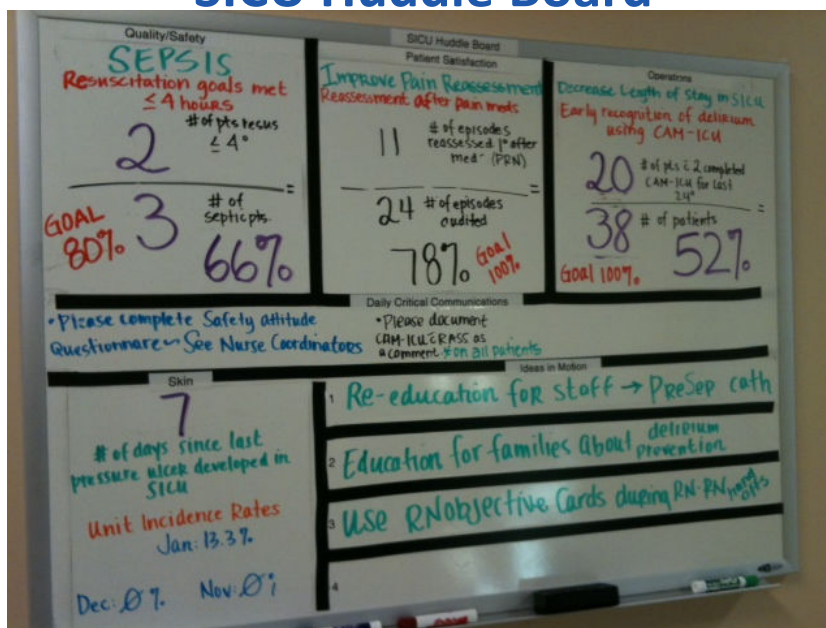 SICU Huddle Board
Quality/Safety
SEPSIS
Resuscitation goals met
≤ 4 hours
2
# of pts resus
≤ 4°
=
3
# of
septic pts.
GOAL
80%
66%
SICU Huddle Board
Patient Satisfaction
Improve Pain Reassessment
Reassessment after pain meds
11
# of episodes
reassessed 1° after
med (PRN)
=
24
# of episodes
audited
78%
Goal
100%
Operations
Decrease Length of Stay in SICU
Early recognition of delirium
using CAM-ICU
20
# of pts c̄ 2 completed
CAM-ICU for last
24°
=
38
# of patients
Goal 100%
52%
Daily Critical Communications
• Please complete Safety attitude
Questionnare ~ See Nurse Coordinators
• Please document
CAM-ICU c̄ RASS as
a comment * on all patients
Skin
7
# of days since last
pressure ulcer developed in
SICU
Unit Incidence Rates
Jan: 13.3%
Dec: 0% Nov: 0%
Ideas in Motion
1 Re-education for staff → PreSep cath
2 Education for families about delirium
prevention
3 Use RN objective Cards during RN-RN hand
offs
4